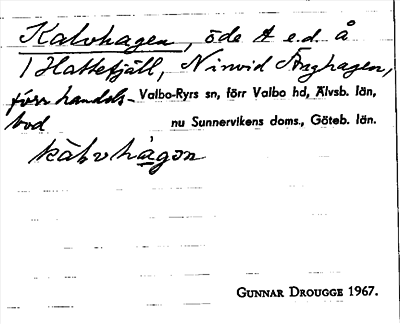 Kalvhagen, öde t e.d. å
1 Hattefjäll, N invid Änghagen,
förr handels- Valbo-Ryrs sn, förr Valbo hd, Älvsb. län,
bod nu Sunnervikens doms., Göteb. län.
kàlvhàgən
GUNNAR DROUGGE 1967.